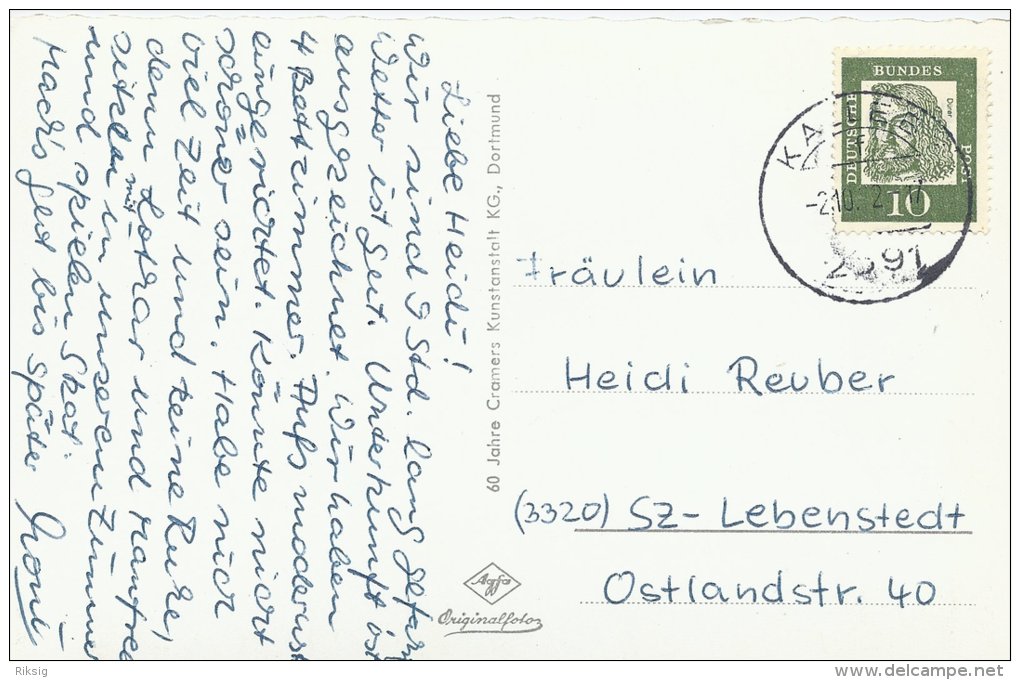 Liebe Heidi!
Wir sind 9 Std. lang gefahr
Wetter ist gut. Underkunft ist
ausgezeichnet. Wir haben
4 Bettzimmer. Aufs moderust
eingerichtet. Könnte nicht
schöner sein. Habe nicht
viel Zeit und keine Ruhe,
denn Lothar und Manfred
sitzen mit in unseren Zimmer
und spielen Skat.
Mach's gut bis später
60 Jahre Cramers Kunstanstalt KG., Dortmund
Agfa
Originalfotos
DEUTSCHE
BUNDES
POST
Dürer
10
-2.10.
Fräulein
Heidi Reuber
(3320) SZ- Lebenstedt
Ostlandstr. 40
Riksig
delcampe.net